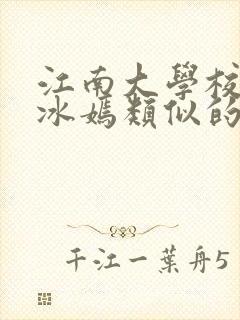 江南大學校
冰媽類似的
千江一葉舟5